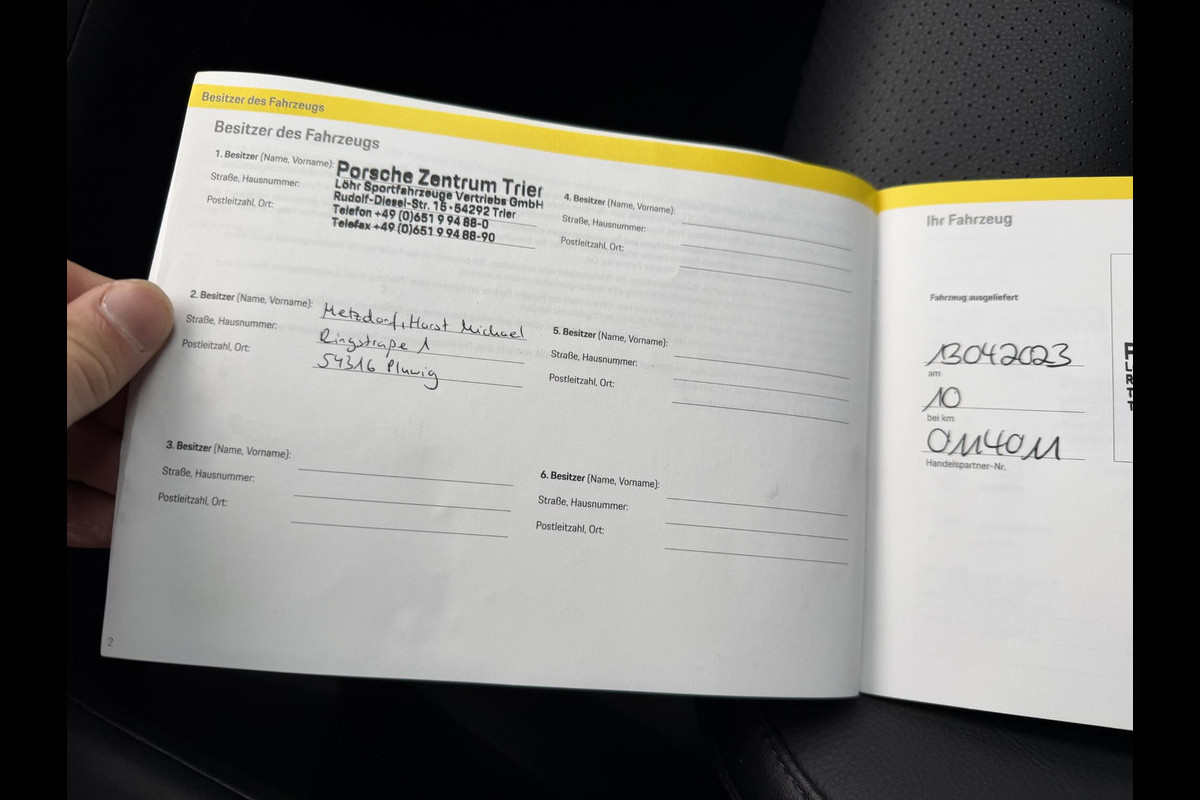 Besitzer des Fahrzeugs
Besitzer des Fahrzeugs
1. Besitzer (Name, Vorname):
Straße, Hausnummer:
Postleitzahl, Ort:
Porsche Zentrum Trier
Löhr Sportfahrzeuge Vertriebs GmbH
Rudolf-Diesel-Str. 15 · 54292 Trier
Telefon +49 (0)651 9 94 88-0
Telefax +49 (0)651 9 94 88-90
2. Besitzer (Name, Vorname): Metzdorf, Horst Michael
Straße, Hausnummer: Ringstraße 1
Postleitzahl, Ort: 54316 Pluwig
3. Besitzer (Name, Vorname):
Straße, Hausnummer:
Postleitzahl, Ort:
4. Besitzer (Name, Vorname):
Straße, Hausnummer:
Postleitzahl, Ort:
5. Besitzer (Name, Vorname):
Straße, Hausnummer:
Postleitzahl, Ort:
6. Besitzer (Name, Vorname):
Straße, Hausnummer:
Postleitzahl, Ort:
2
Ihr Fahrzeug
Fahrzeug ausgeliefert
13042023
am
10
bei km
0114011
Handelspartner-Nr.